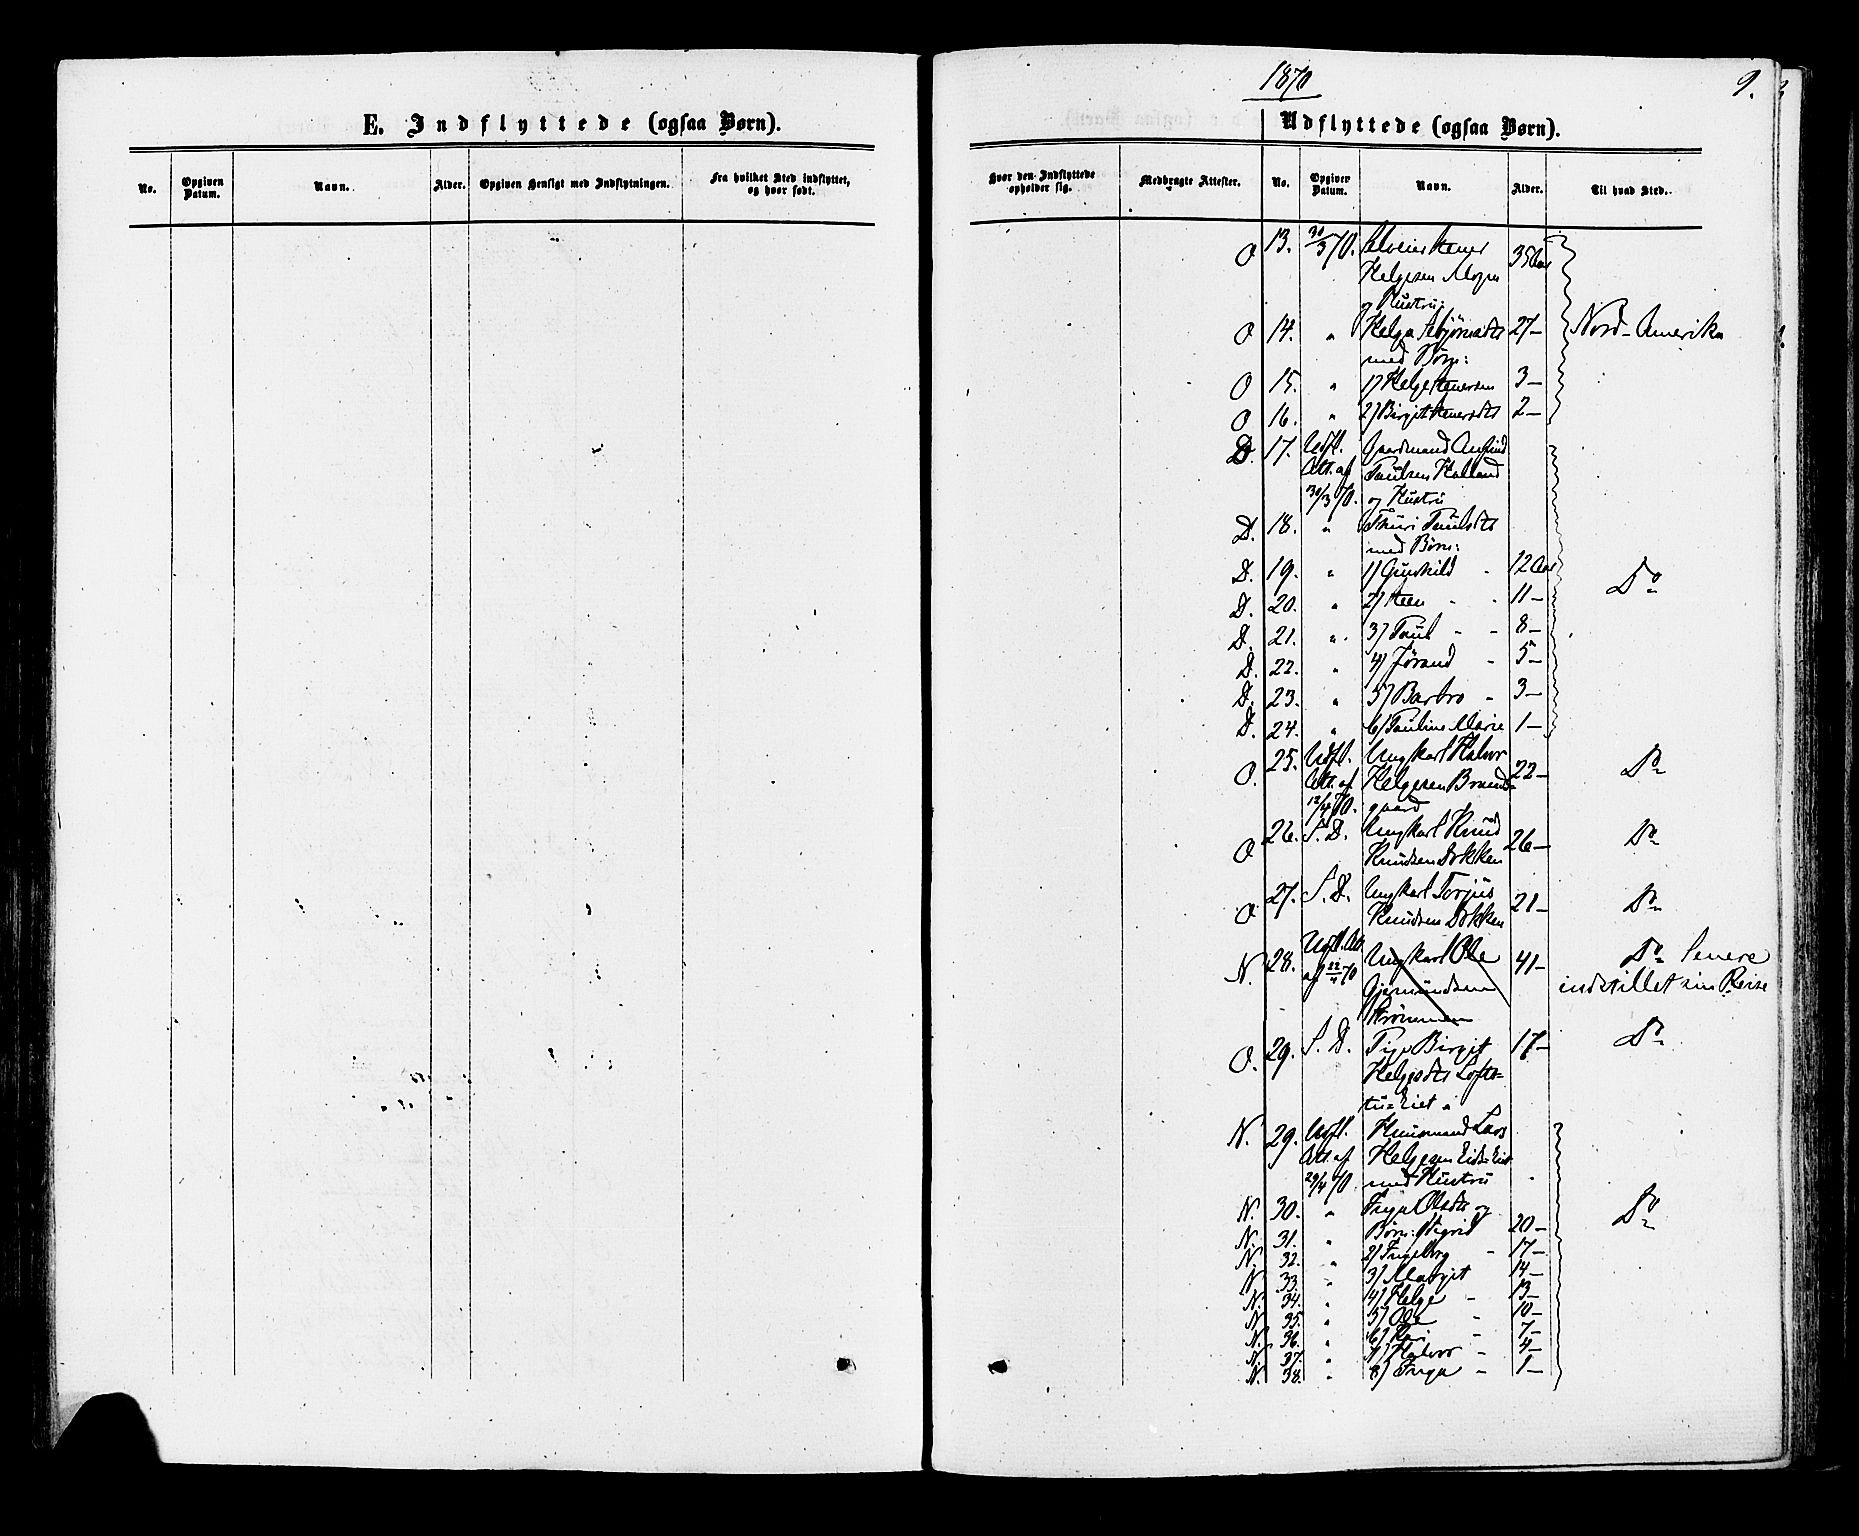 E. Indflyttede (ogsaa Børn).
No.
Opgiven Datum.
Navn.
Alder.
Opgiven Hensigt med Indflytningen.
Fra hvilket Sted indflyttet, og hvor født.
1870
9.
Udflyttede (ogsaa Børn).
Hvor den Indflyttede opholder sig.
Medbragte Attester.
No.
Opgiven Datum.
Navn.
Alder.
Til hvad Sted.
O 13. 30/3 70. 35 Aar
Helgesen Mogen
og Hustru:
O 14. " Helga 27- Nord-Amerika
med Børn:
O 15. " 1) Helge Stenersen 3-
O 16. " 2) Birgit Stenersdtr 2-
D. 17. Udfl. Gaardmand
Att. af Paulsen Haaland
30/3 70. og Hustru
D. 18. " Thuri
med Børn:
D. 19. " 1) Gunhild - 12 Aar Do
D. 20. " 2) Steen - - 11-
D. 21. " 3) Paul - - 8-
D. 22. " 4) Jørand - 5-
D. 23. " 5) Barbro - 3-
D. 24. " 6) Pauline Marie 1-
O. 25. Udfl. Ungkarl Halvor
Att. af Helgesen 22- Do
12/4 70. gaard
O. 26. S. D. Ungkarl Knud
Knudsen Dokken 26- Do
O. 27. S. D. Ungkarl Torjus
Knudsen Dokken 21- Do
N. 28. Udfl. Att. Ungkarl Ole 41- Do Senere
af 22/4 70 Gjermundsen indstillet sin Reise
O. 29. S. D. Pige Birgit 17- Do
Helgesdtr
N. 29. Udfl. Husmand Lars
Att. af Helgesen
29/4 70. med Hustru
N. 30. " Olsdtr og Do
N. 31. " Børn: Sigrid 20-
N. 32. " 2) Ingeborg - 17-
N. 33. " 3) Margit 14-
N. 34. " 4) Helge - 13-
N. 35. " 5) Ole - 10-
N. 36. " 6) Kari - 7-
N. 37. " 7) Halvor - 4-
N. 38. " 8) - 1-